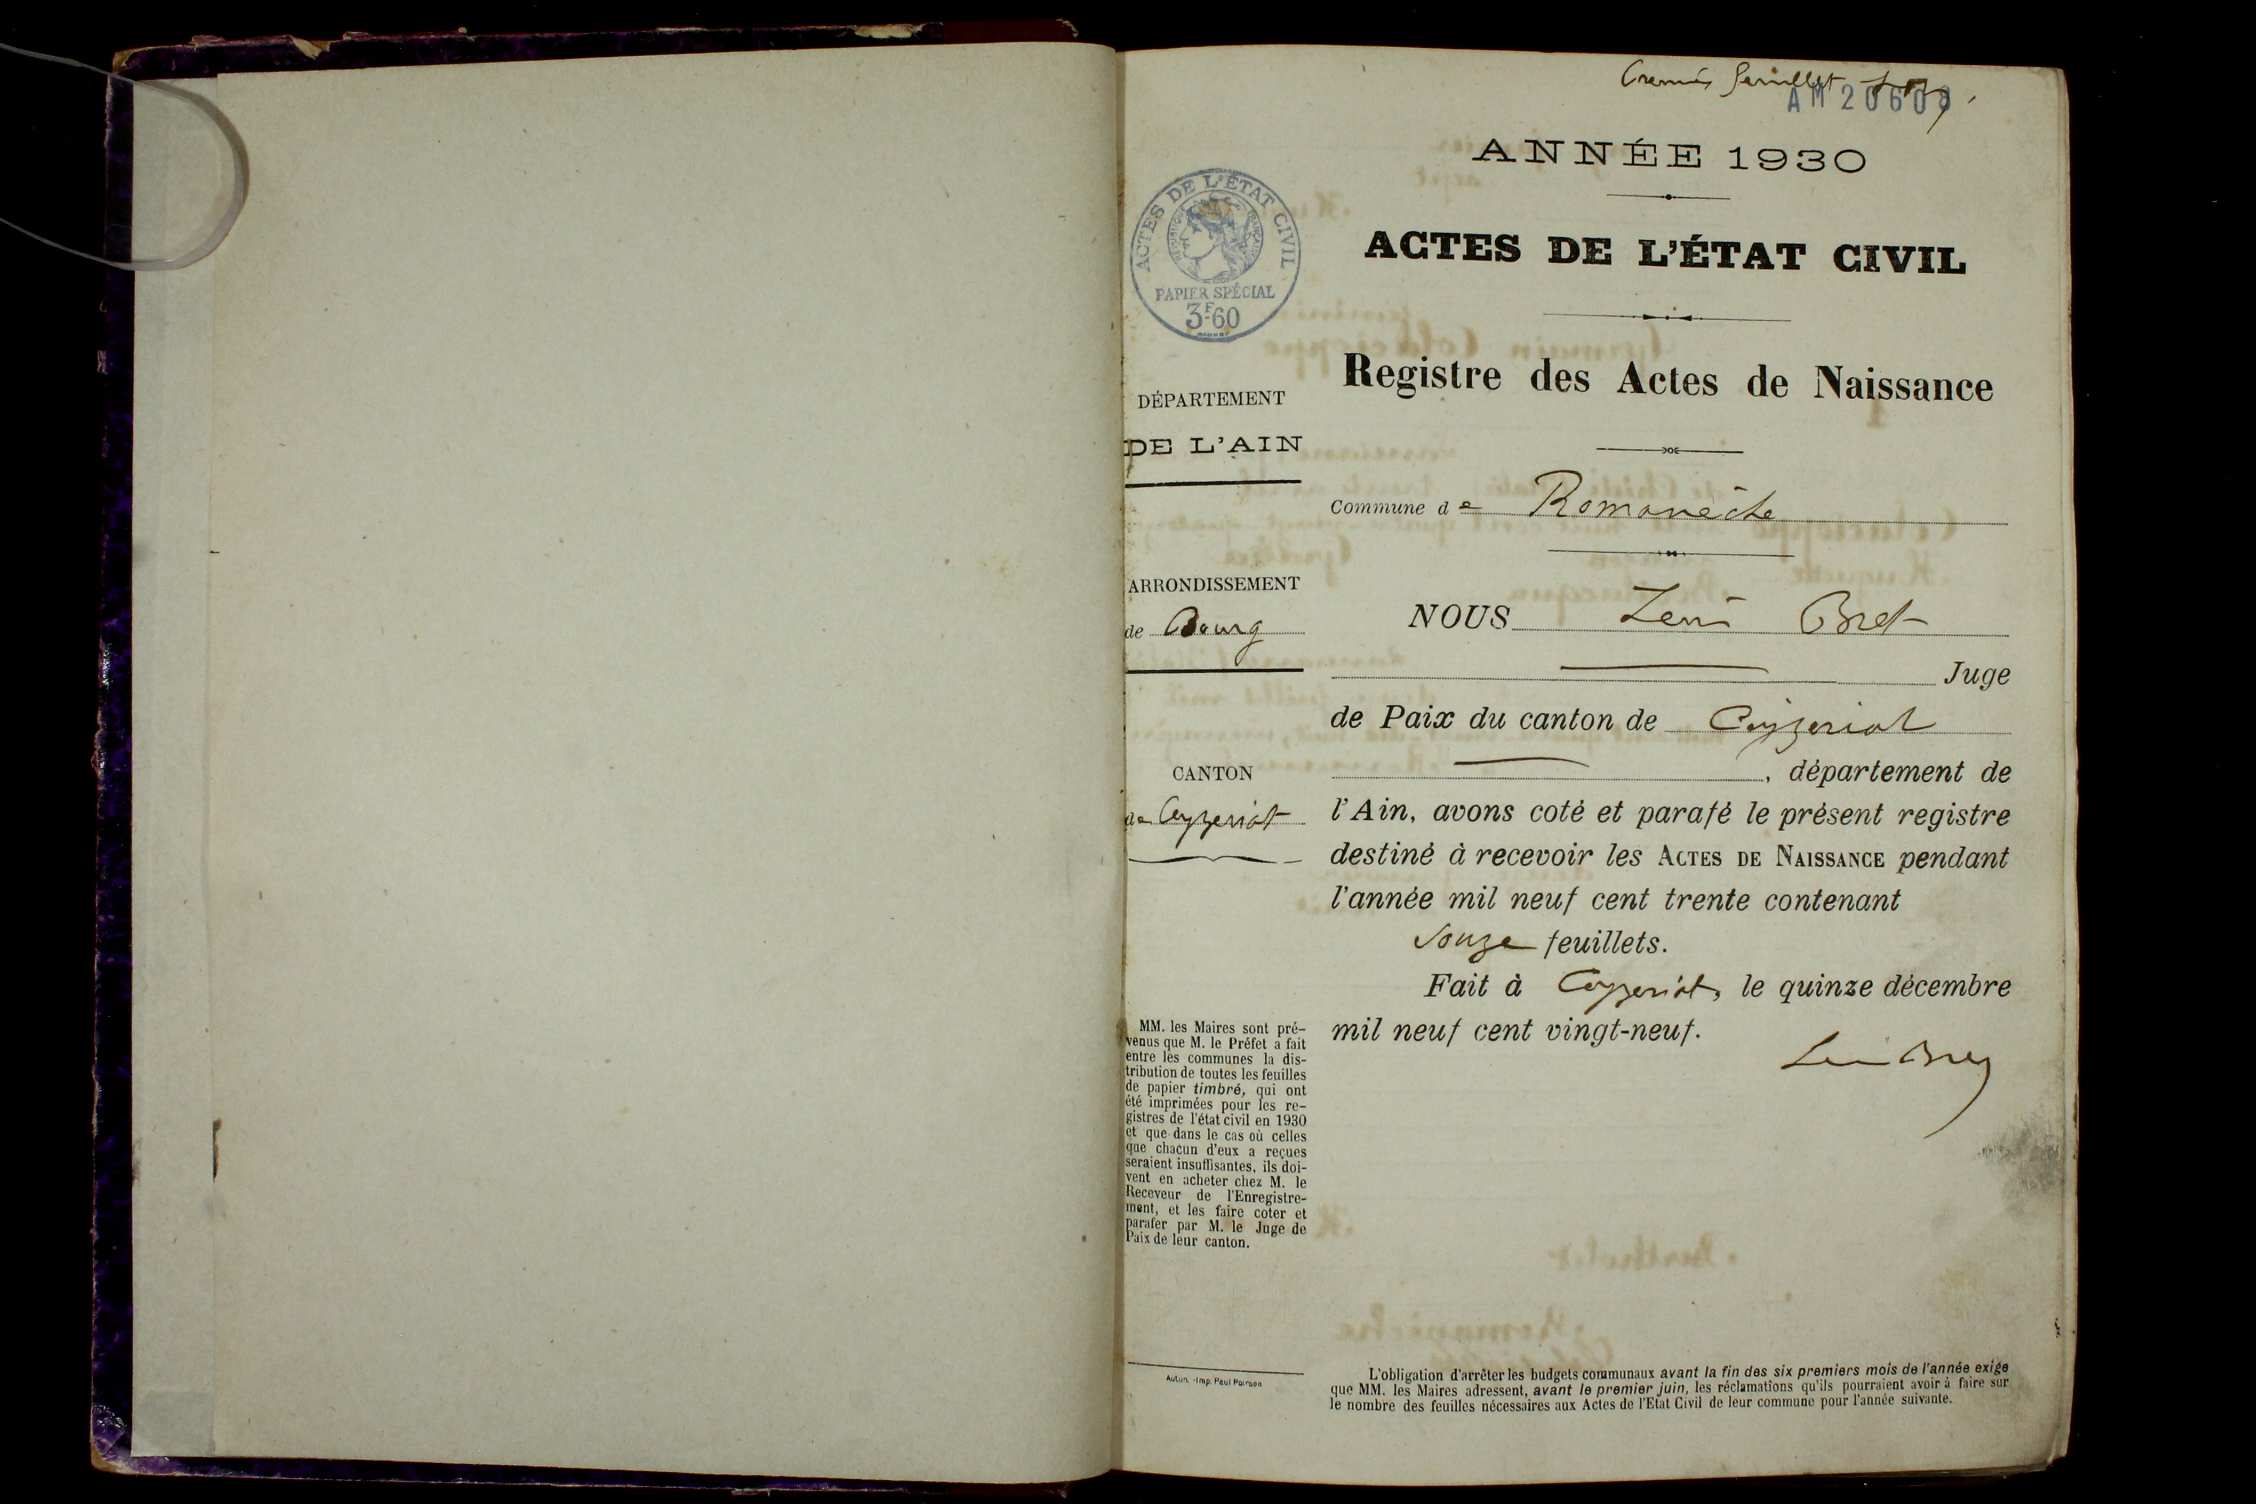 Premier feuillet
AM 20608
ANNÉE 1930
ACTES DE L'ÉTAT CIVIL
RÉPUBLIQUE FRANÇAISE
PAPIER SPÉCIAL
3F60
ACTES DE L'ÉTAT CIVIL
Registre des Actes de Naissance
DÉPARTEMENT
DE L'AIN
Commune de Romanèche
ARRONDISSEMENT
de Bourg
CANTON
de Ceyzeriat
NOUS Bret
Juge
de Paix du canton de Ceyzeriat
, département de
l'Ain, avons coté et parafé le présent registre
destiné à recevoir les ACTES DE NAISSANCE pendant
l'année mil neuf cent trente contenant
feuillets.
Fait à Ceyzeriat, le quinze décembre
mil neuf cent vingt-neuf.
MM. les Maires sont pré-
venus que M. le Préfet a fait
entre les communes la dis-
tribution de toutes les feuilles
de papier timbré, qui ont
été imprimées pour les re-
gistres de l'état civil en 1930
et que dans le cas où celles
que chacun d'eux a reçues
seraient insuffisantes, ils doi-
vent en acheter chez M. le
Receveur de l'Enregistre-
ment, et les faire coter et
parafer par M. le Juge de
Paix de leur canton.
Autun. - Imp. Paul Poirson
L'obligation d'arrêter les budgets communaux avant la fin des six premiers mois de l'année exige
que MM. les Maires adressent, avant le premier juin, les réclamations qu'ils pourraient avoir à faire sur
le nombre des feuilles nécessaires aux Actes de l'Etat Civil de leur commune pour l'année suivante.